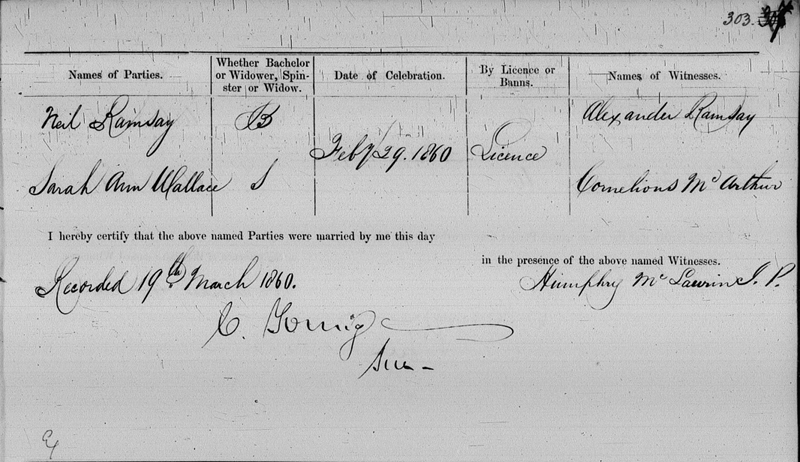 303.
Names of Parties.
Whether Bachelor or Widower, Spinster or Widow.
Date of Celebration.
By Licence or Banns.
Names of Witnesses.
Neil Ramsay
B
Alexander Ramsay
Feby 29. 1860
Licence
Sarah Ann Wallace
S
Cornelious Mc Arthur
I hereby certify that the above named Parties were married by me this day
in the presence of the above named Witnesses.
Recorded 19th March 1860.
Humphry Mc Lawrin J. P.
C.